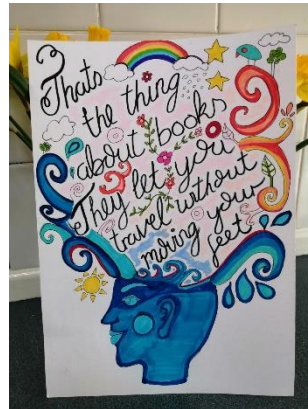 Thats
the thing
about books
They let you
travel without
moving your
feet